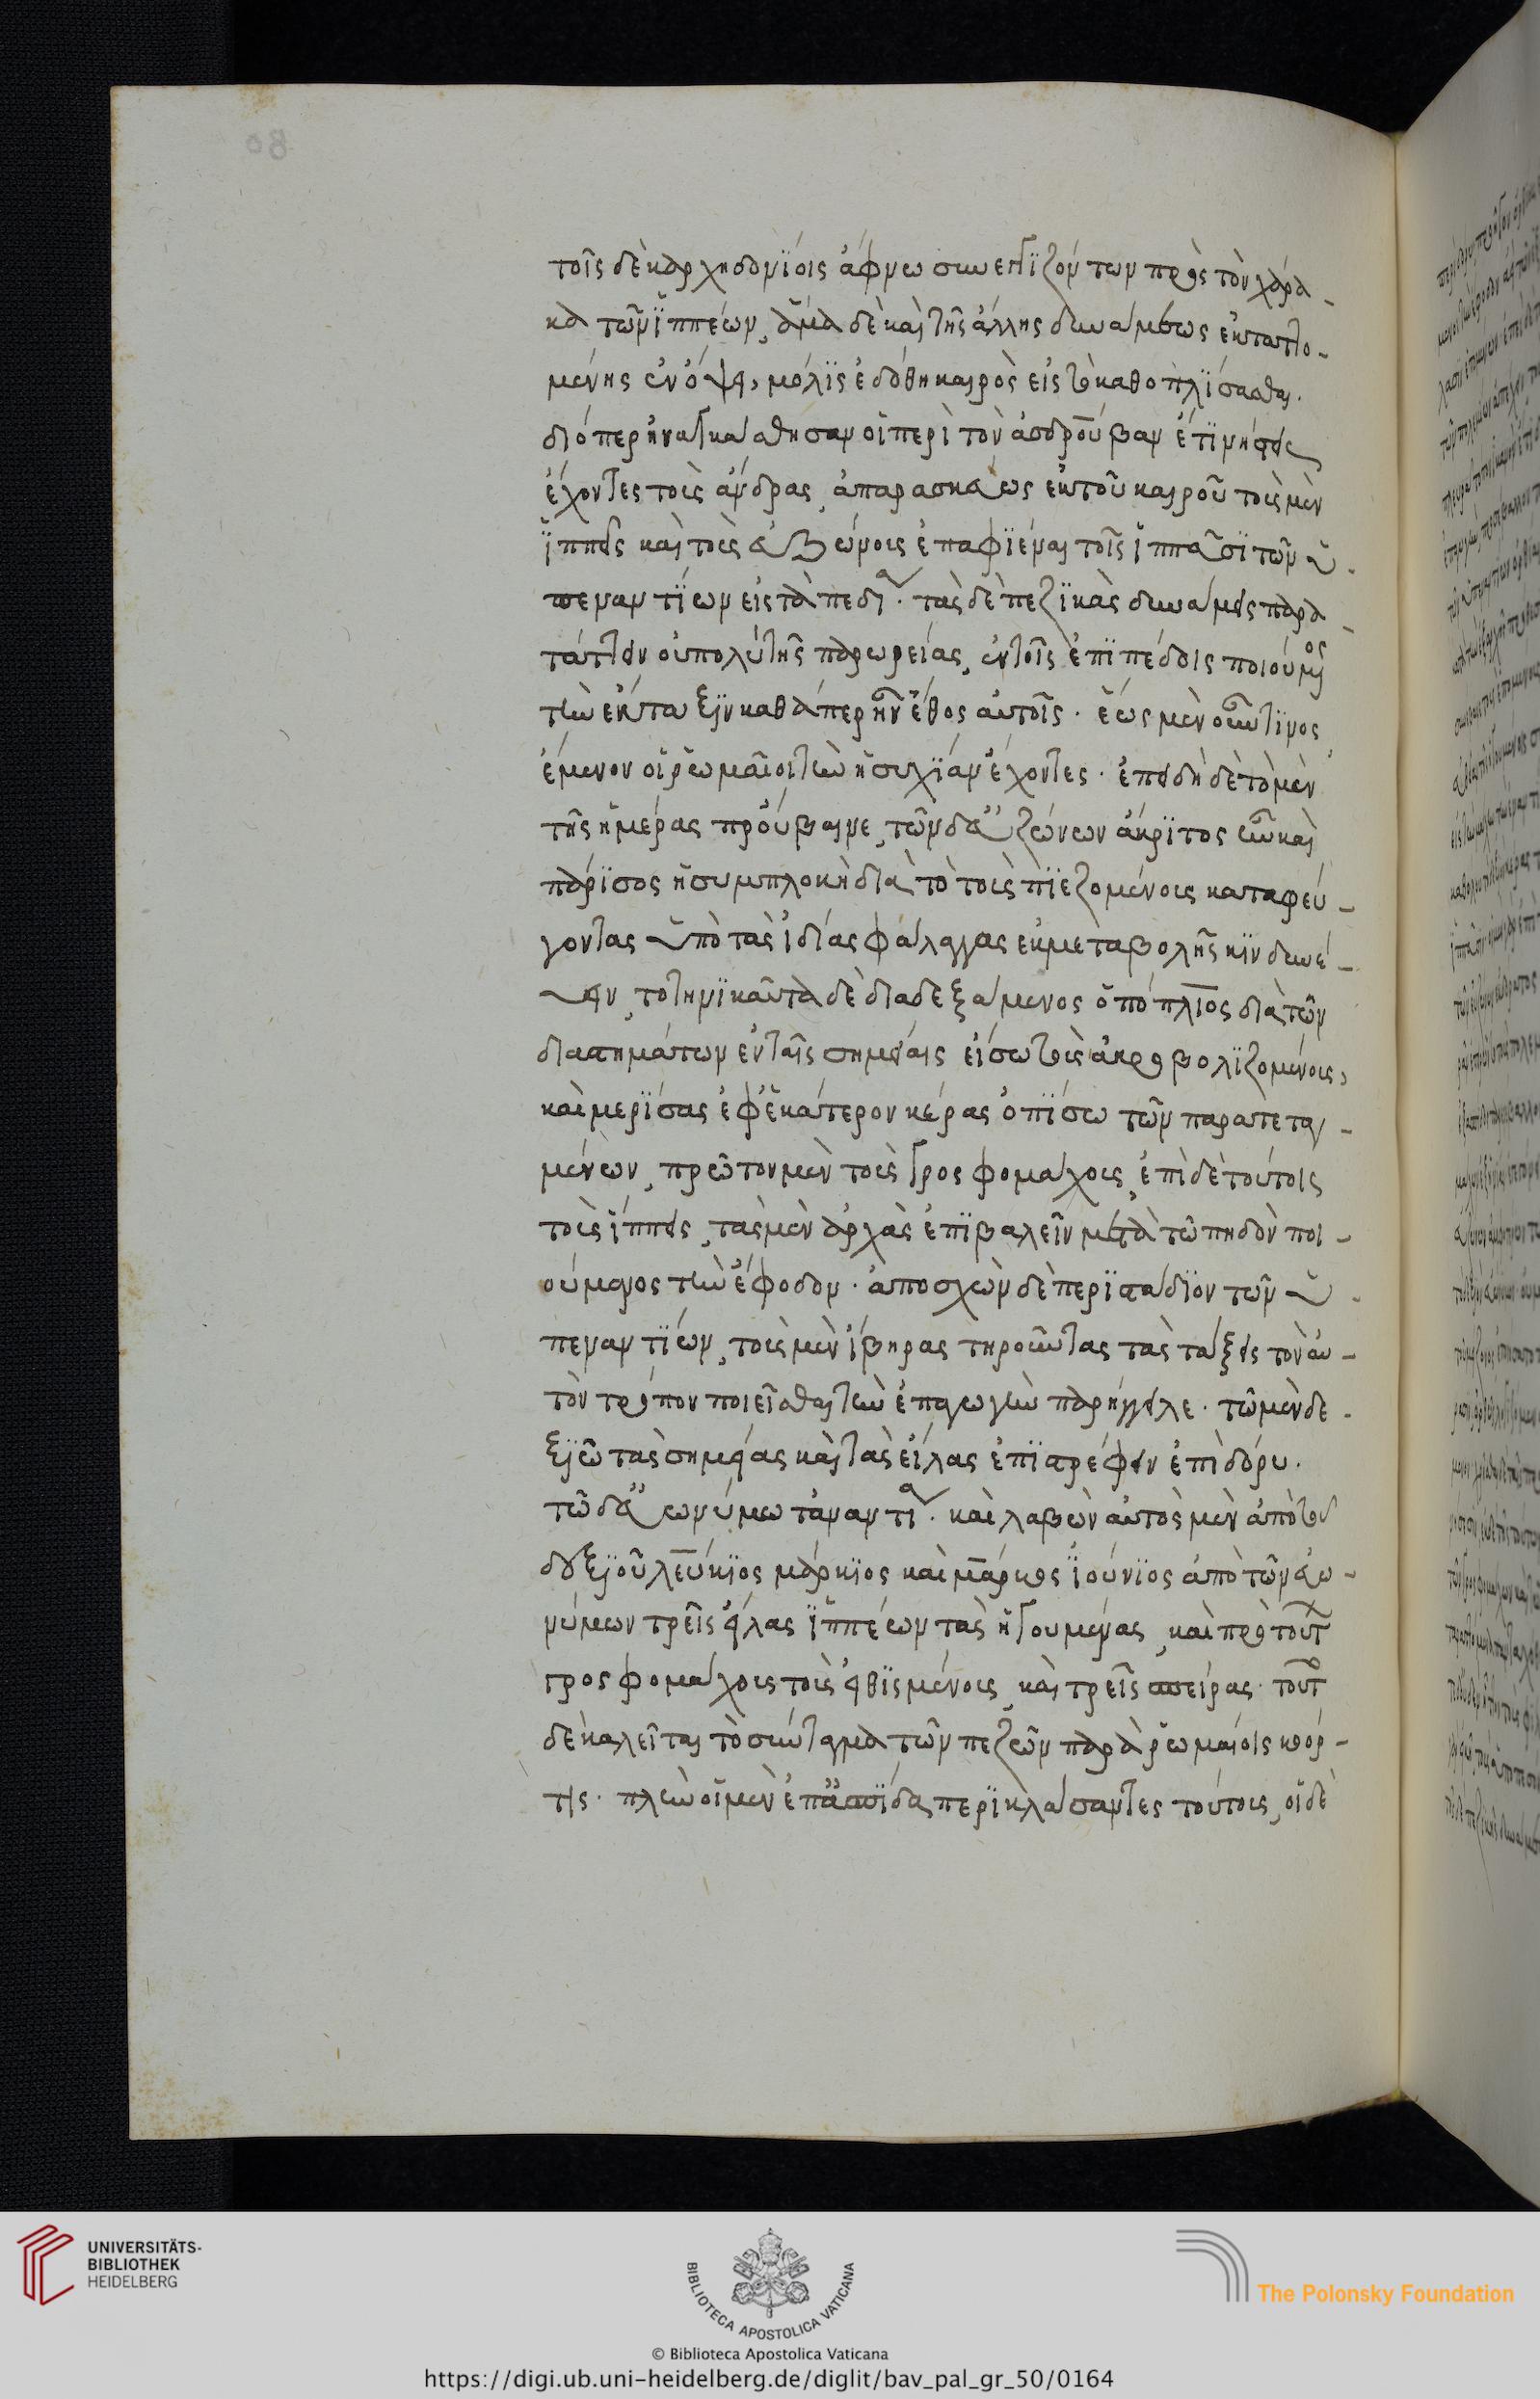 80
τοῖς δὲ καρχηδονίοις ἄφνω συνεγγϊζόντων πρὸς τὸν χάρα-
κα τῶν ἱππέων, ἅμα δὲ καὶ τῆς ἄλλης δυνάμεως ἐκταττο-
μένης ἐν ὄψει, μόλϊς ἐδόθη καιρὸς εἰς τὸ καθοπλϊσασθαι.
διόπερ ἠναγκάσθησαν οἱ περὶ τὸν ἀσδρούβαν ἔτϊ νήστεις
ἔχοντες τοὺς ἄνδρας, ἀπαρασκεύως ἐκ τοῦ καιροῦ τοὺς μὲν
ἱππεῖς καὶ τοὺς εὐζώνους ἐπαφϊέναι τοῖς ἱππεῦσϊ τῶν ὑ-
πεναντϊων εἰς τὰ πεδία. τὰς δὲ πεζϊκὰς δυνάμεις παρα-
τάττειν οὐ πολὺ τῆς παρωρείας, ἐν τοῖς ἐπϊπέδοις ποιούμενος
τὴν ἔκταξϊν καθάπερ ἦν ἔθος αὐτοῖς. ἕως μὲν οὖν τϊνος
ἔμενον οἱ ῥωμαῖοι τὴν ἡσυχϊαν ἔχοντες. ἐπειδὴ δὲ τὸ μὲν
τῆς ἡμέρας προύβαινε, τῶν δ' εὐζώνων ἄκρϊτος ἦν καὶ
πάρϊσος ἡ συμπλοκὴ διὰ τὸ τοὺς πϊεζομένους καταφεύ-
γοντας ὑπὸ τὰς ἰδίας φάλαγγας ἐκ μεταβολῆς κϊνδυνεύ-
ειν, τὸ τηνϊκαῦτα δὲ διαδεξάμενος ὁ πόπλϊος διὰ τῶν
διαστημάτων ἐν ταῖς σημείαις εἴσω τοὺς ἀκροβολϊζομένους,
καὶ μερϊσας ἐφ' ἑκάτερον κέρας ὀπϊσω τῶν παρατεταγ-
μένων, πρῶτον μὲν τοὺς γροσφομάχους, ἐπὶ δὲ τούτοις
τοὺς ἱππεῖς, τὰς μὲν ἀρχὰς ἐπϊβαλεῖν μετὰ τῶπηδὸν ποι-
ούμενος τὴν ἔφοδον. ἀποσχὼν δὲ περϊ στάδϊον τῶν ὑ-
πεναντϊων, τοὺς μὲν ἴβηρας τηροῦντας τὰς τάξεις τὸν αὐ-
τὸν τρόπον ποιεῖσθαι τὴν ἐπαγωγὴν παρήγγειλε. τῶ μὲν δε-
ξϊῶ τὰς σημείας καὶ τὰς εἴλας ἐπϊστρέφειν ἐπὶ δόρυ.
τῶ δ' εὐωνύμω τἀναντία. καὶ λαβὼν αὐτὸς μὲν ἀπὸ τοῦ
δεξϊοῦ λεύκϊος μάρκϊος καὶ μάρκος ἰούνϊος ἀπὸ τῶν εὐω-
νύμων τρεῖς εἴλας ἱππέων τὰς ἡγουμένας, καὶ πρὸ τούτ
γροσφομάχους τοὺς εἰθϊσμένους, καὶ τρεῖς σπείρας. τοῦτ
δὲ καλεῖται τὸ σύνταγμα τῶν πεζῶν παρὰ ῥωμαίοις κοόρ-
τις. πλὴν οἱ μὲν ἐπ' ἀσπϊδα περϊκλάσαντες τούτους, οἱ δὲ
UNIVERSITÄTS-
BIBLIOTHEK
HEIDELBERG
BIBLIOTECA APOSTOLICA VATICANA
The Polonsky Foundation
© Biblioteca Apostolica Vaticana
https://digi.ub.uni-heidelberg.de/diglit/bav_pal_gr_50/0164